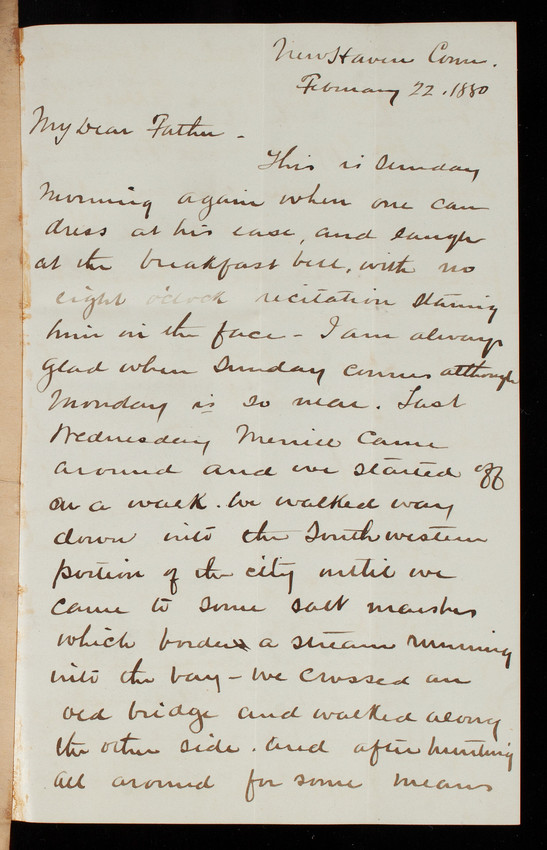 New Haven Conn.
February 22, 1880
My Dear Father -
This is Sunday
Morning again when one can
dress at his ease, and laugh
at the breakfast bell, with no
eight o'clock recitation staring
him in the face - I am always
glad when Sunday comes although
Monday is so near. Last
Wednesday Merrill came
around and we started off
on a walk. We walked way
down into the Southwestern
portion of the city until we
came to some salt marshes
which border a stream running
into the bay - we crossed an
old bridge and walked along
the other side. And after hunting
all around for some means